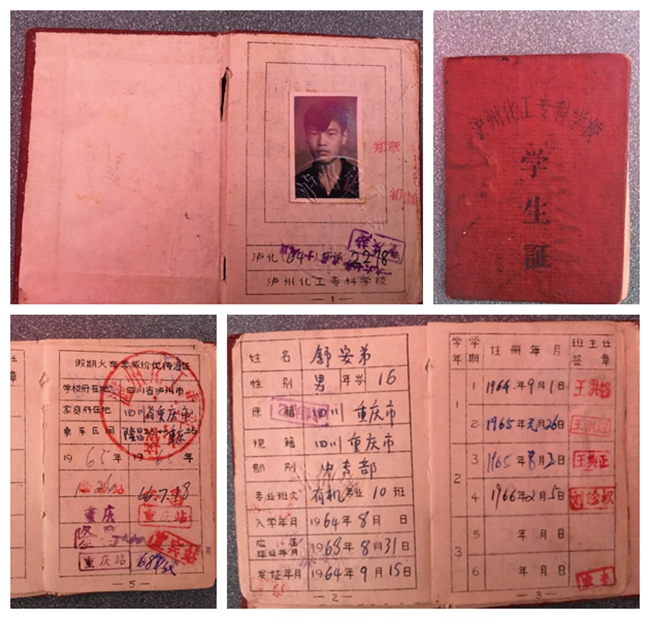 泸州化工专科学校
—1—
泸州化工专科学校
学
生
証
学校所在地 四川省泸州市
家庭所在地 四川省重庆市
乘车区间
1965年
66.7.18
重庆站
重庆
重庆站
—5—
姓名 舒安弟
性别 男 年岁 16
原籍 四川 重庆市
现籍 四川 重庆市
部别 中专部
专业班次 有机专业10班
入学年月 1964年8月 日
毕业年月 1968年8月31日
发证年月 1964年9月15日
—2—
学年 学期 注册年月 班主任签章
1 1 1964年9月1日 王洪正
2 1965年元月26日 王洪正
2 3 1965年8月2日 王洪正
4 1966年2月5日
3 5 年月日
6 年月日
—3—